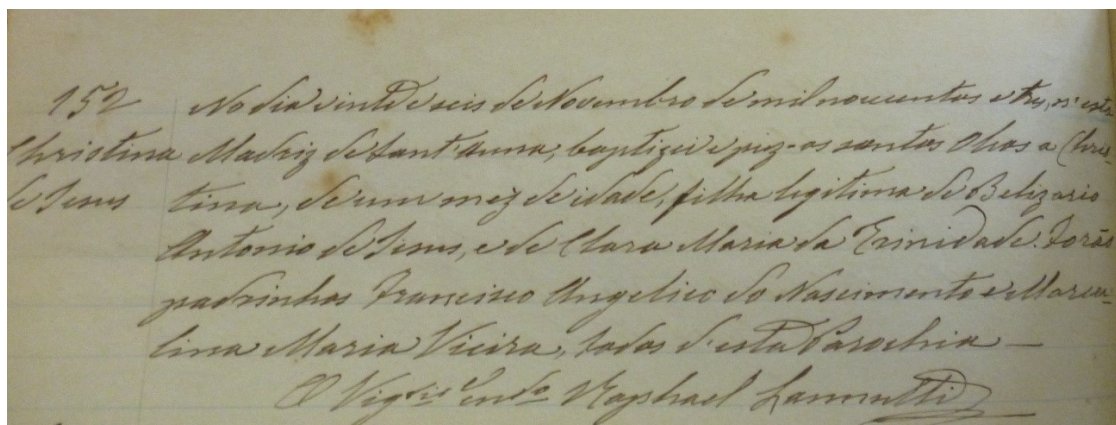 152 No dia vinte e seis de Novembro de mil novecentos e tres, n'esta
Christina Madriz de Sant'Anna, baptizei e puz os santos Oleos a Chris-
de Jesus tina, de um mez de idade, filha legitima de Belizario
Antonio de Jesus, e de Clara Maria da Trinidade. Forão
padrinhos Francisco Angelico do Nascimento e Marcu-
lina Maria Vieira, todos d'esta Parochia —
O Vigrio Raphael